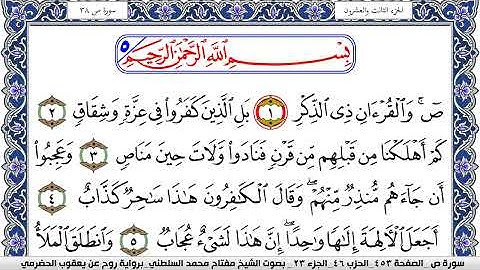 سورة ص ٣٨
الجزء الثالث والعشرون
بِسْمِ اللَّهِ الرَّحْمَٰنِ الرَّحِيمِ
صٓ ۚ وَالْقُرْءَانِ ذِي الذِّكْرِ ١ بَلِ الَّذِينَ كَفَرُوا فِي عِزَّةٍ وَشِقَاقٍ ٢
كَمْ أَهْلَكْنَا مِن قَبْلِهِم مِّن قَرْنٍ فَنَادَوا وَّلَاتَ حِينَ مَنَاصٍ ٣ وَعَجِبُوا
أَن جَاءَهُم مُّنذِرٌ مِّنْهُمْ ۖ وَقَالَ الْكَٰفِرُونَ هَٰذَا سَٰحِرٌ كَذَّابٌ ٤
أَجَعَلَ الْآلِهَةَ إِلَٰهًا وَاحِدًا ۖ إِنَّ هَٰذَا لَشَيْءٌ عُجَابٌ ٥ وَانطَلَقَ الْمَلَأُ
سورة ص _ الصفحة ٤٥٣_ الحزب ٤٦_ الجزء ٢٣ _ بصوت الشيخ مفتاح محمد السلطني_برواية روح عن يعقوب الحضرمي